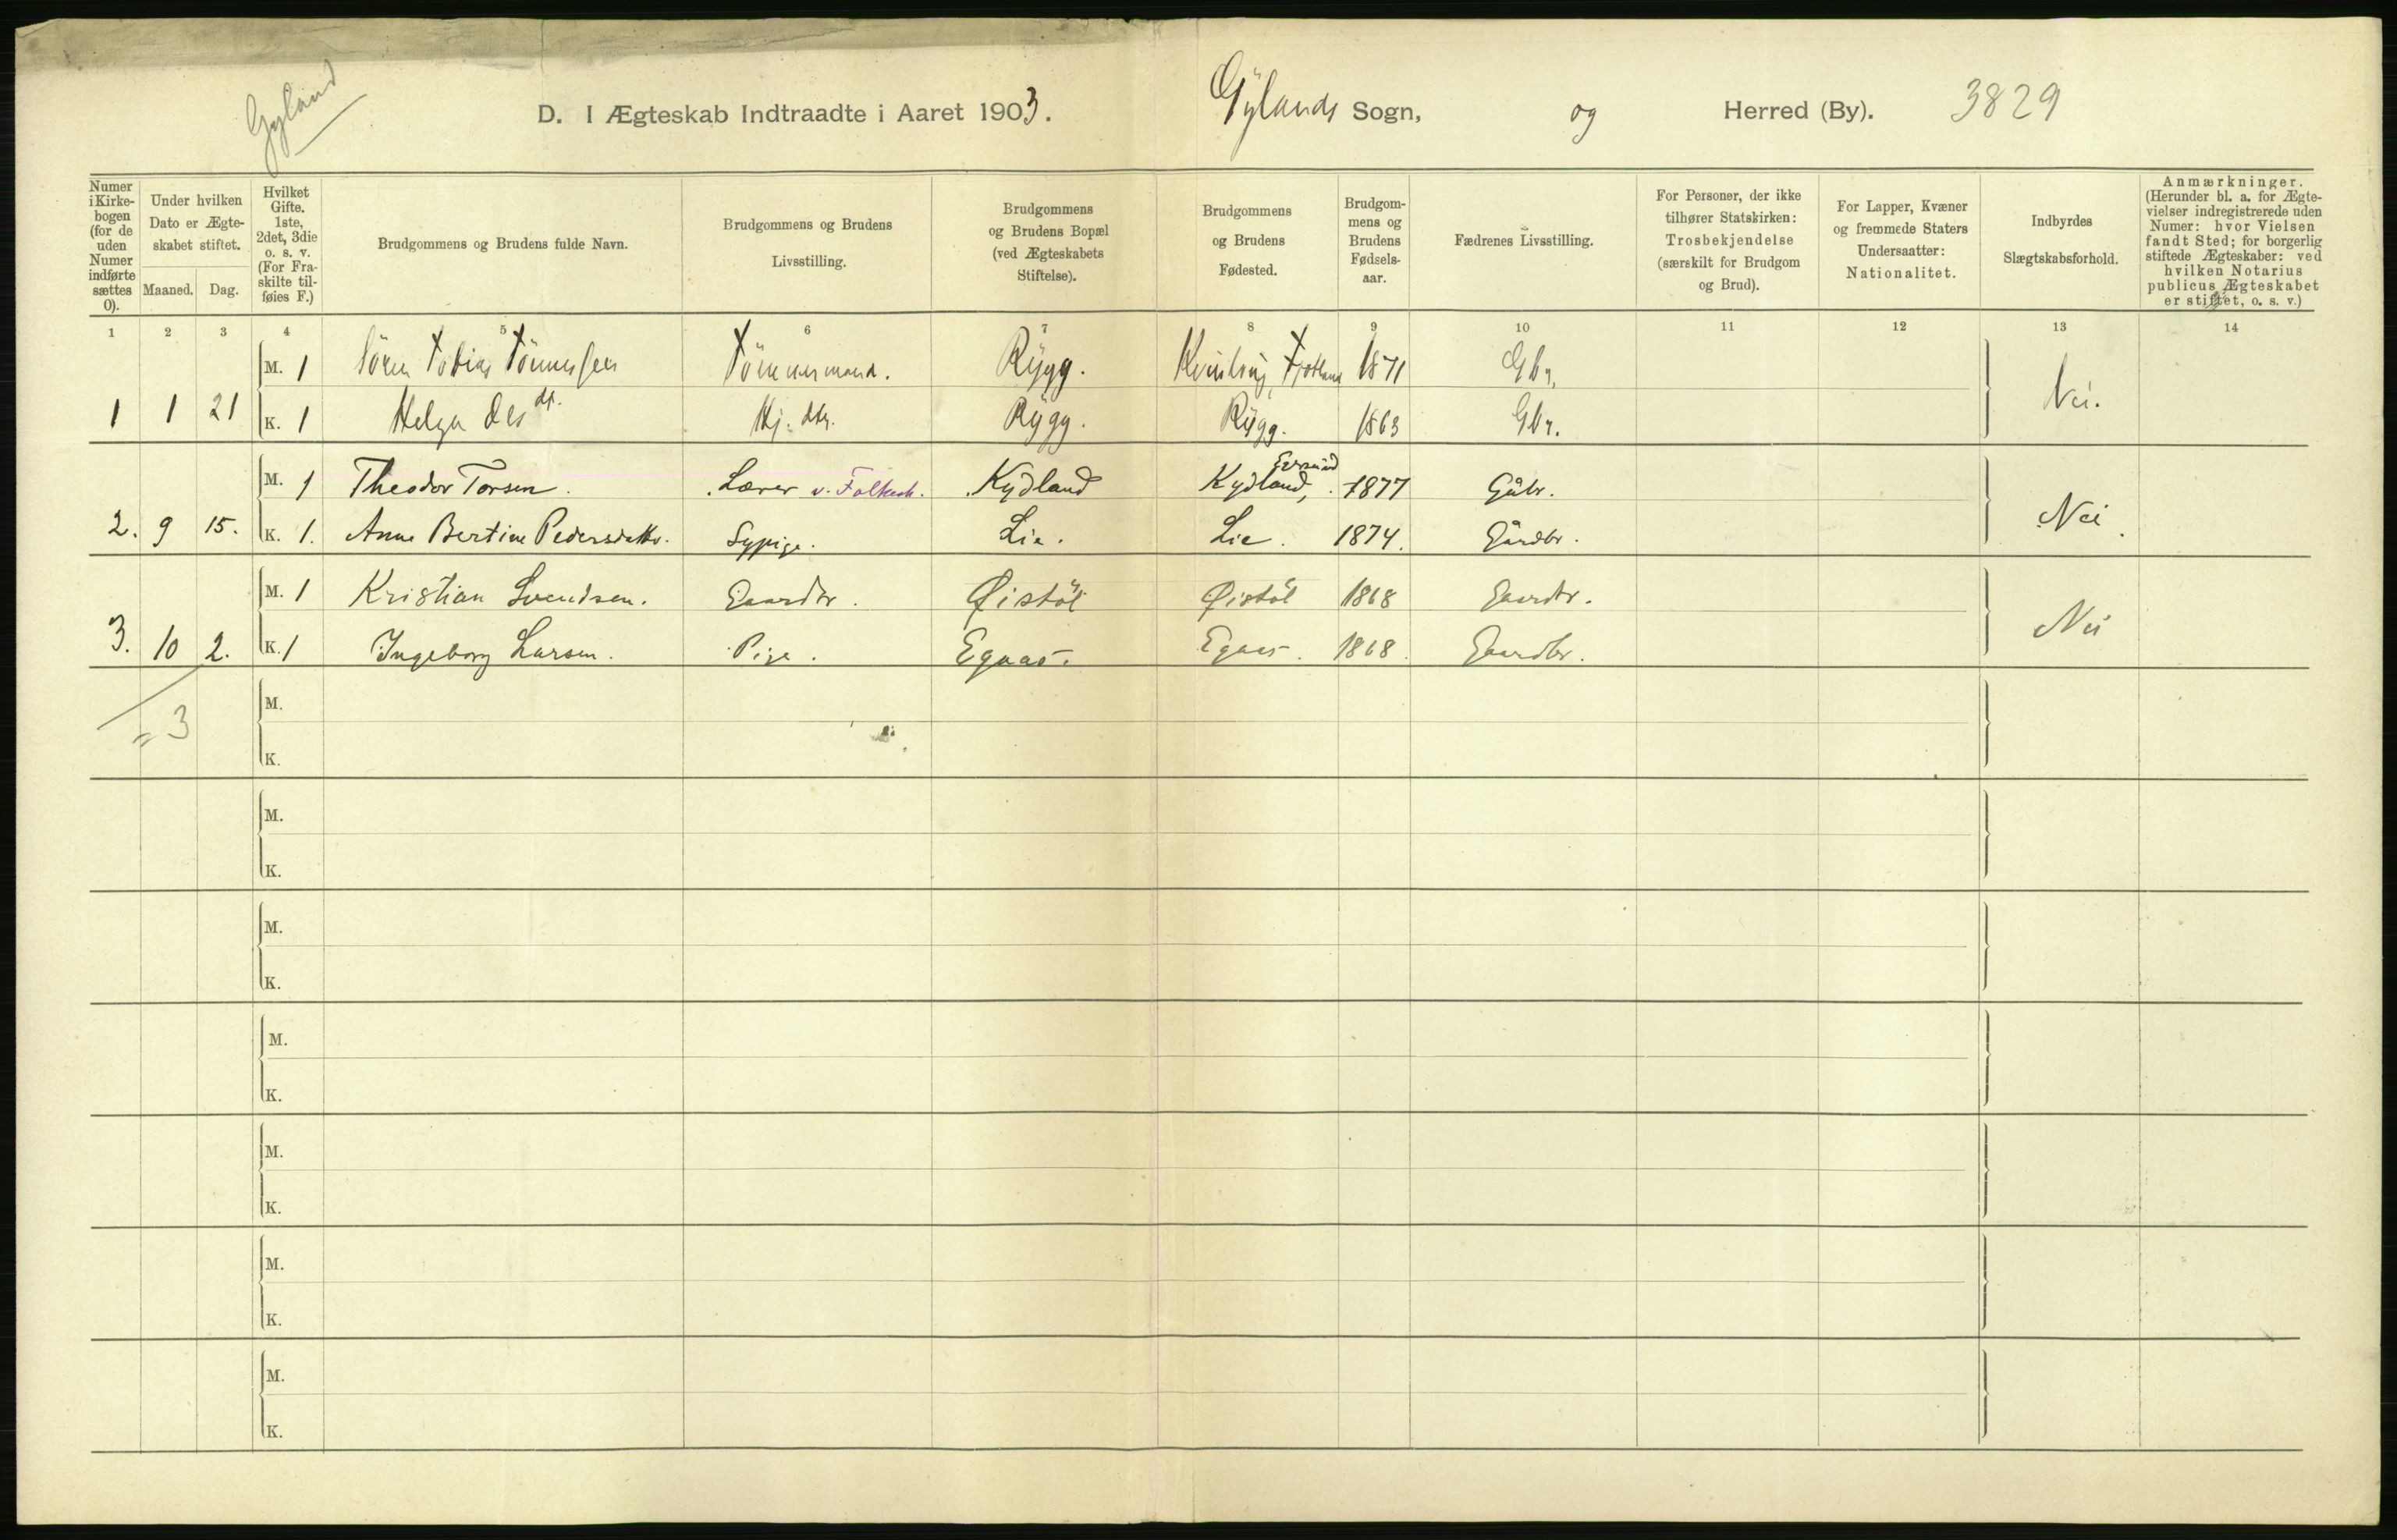 Gyland
D. I Ægteskab Indtraadte i Aaret 1903. Gylands Sogn, og Herred (By). 3829
Numer i Kirkebogen (for de uden Numer indførte sættes 0).
Under hvilken Dato er Ægteskabet stiftet.
Maaned. Dag.
Hvilket Gifte. 1ste, 2det, 3die o. s. v. (For Fraskilte tilføies F.)
Brudgommens og Brudens fulde Navn.
Brudgommens og Brudens Livsstilling.
Brudgommens og Brudens Bopæl (ved Ægteskabets Stiftelse).
Brudgommens og Brudens Fødested.
Brudgommens og Brudens Fødselsaar.
Fædrenes Livsstilling.
For Personer, der ikke tilhører Statskirken: Trosbekjendelse (særskilt for Brudgom og Brud).
For Lapper, Kvæner og fremmede Staters Undersaatter: Nationalitet.
Indbyrdes Slægtskabsforhold.
Anmærkninger. (Herunder bl. a. for Ægtevielser indregistrerede uden Numer: hvor Vielsen fandt Sted; for borgerlig stiftede Ægteskaber: ved hvilken Notarius publicus Ægteskabet er stiftet, o. s. v.)
1 2 3 4 5 6 7 8 9 10 11 12 13 14
M. 1 Sören Tobias Tönnessen Tömmermand. Rygg. Fjotland 1871 Gbr.
1 1 21 K. 1 Helga Olsdt. Hj. dtr. Rygg. Rygg. 1863 Gbr. Nei.
M. 1 Theodor Torsen. Lærer v. Folkesk. Kydland Kydland, 1877 Gåbr.
2. 9 15. K. 1. Anne Bertine Pedersdatter. Sypige. Lie. Lie. 1874. Gårdbr. Nei.
M. 1 Kristian Svendsen. Gaardbr. Øistöl Øistöl 1868 Gaardbr.
3. 10 2. K. 1 Ingeborg Larsen. Pige. Egaas. Egaas. 1868. Gaardbr. Nei
= 3
M.
K.
M.
K.
M.
K.
M.
K.
M.
K.
M.
K.
M.
K.